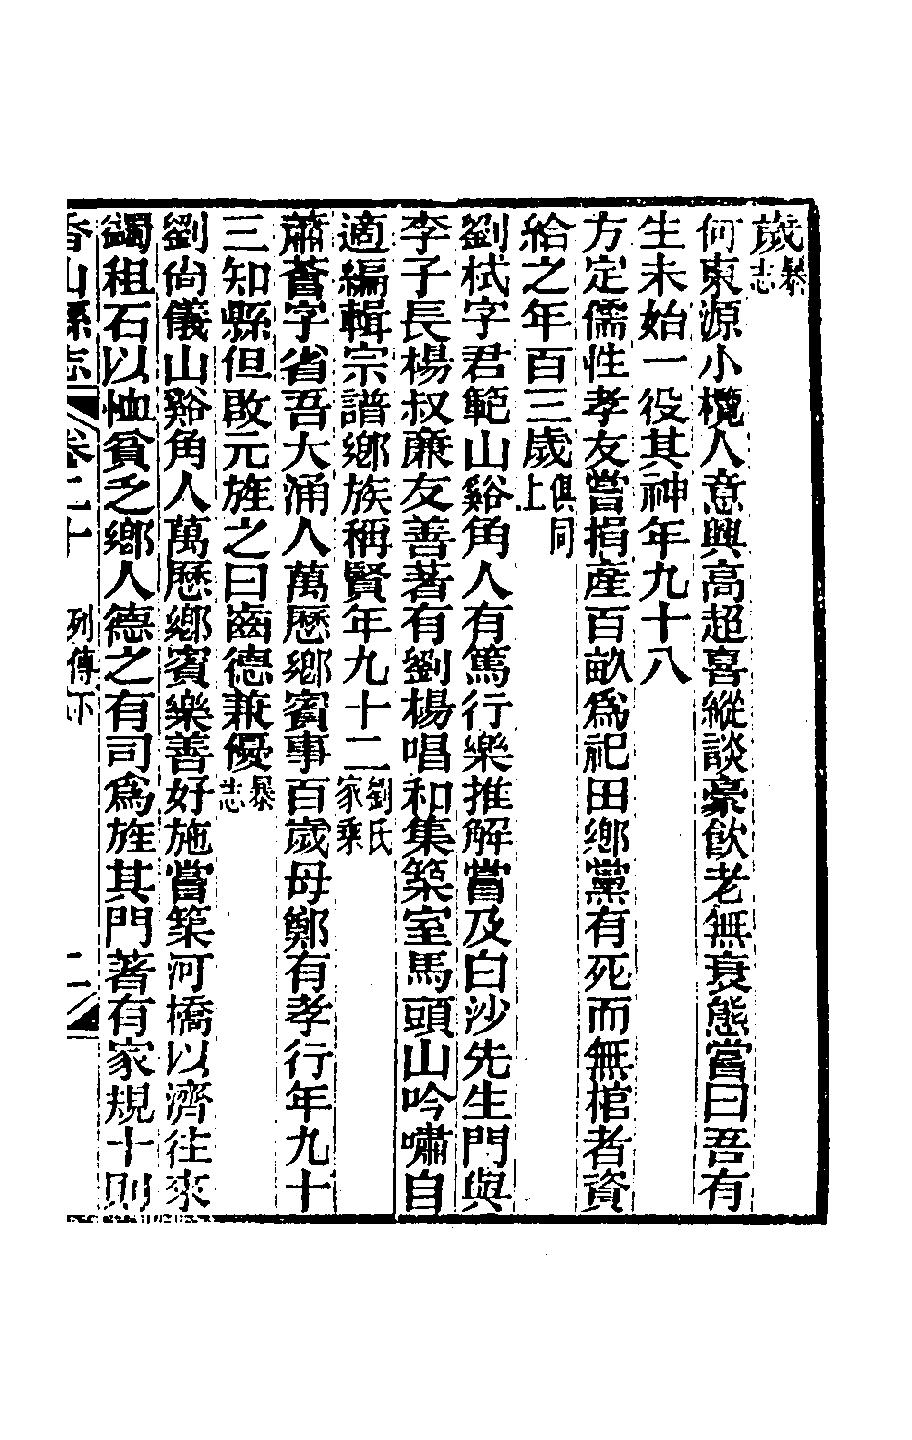 歲暴志
何東源小欖人意興高超喜縱談豪飲老無衰態嘗曰吾有
生未始一役其神年九十八
方定儒性孝友嘗捐產百畝爲祀田鄉黨有死而無棺者資
給之年百三歲俱同上
劉栻字君範山谿角人有篤行樂推解嘗及白沙先生門與
李子長楊叔廉友善著有劉楊唱和集築室馬頭山吟嘯自
適編輯宗譜鄉族稱賢年九十二劉氏家乘
蕭薈字省吾大涌人萬歷鄉賓事百歲母鄭有孝行年九十
三知縣但啟元旌之曰齒德兼優暴志
劉尙儀山谿角人萬歷鄉賓樂善好施嘗築河橋以濟往來
蠲租石以恤貧乏鄉人德之有司爲旌其門著有家規十則
香山縣志 卷二十 列傳下 二